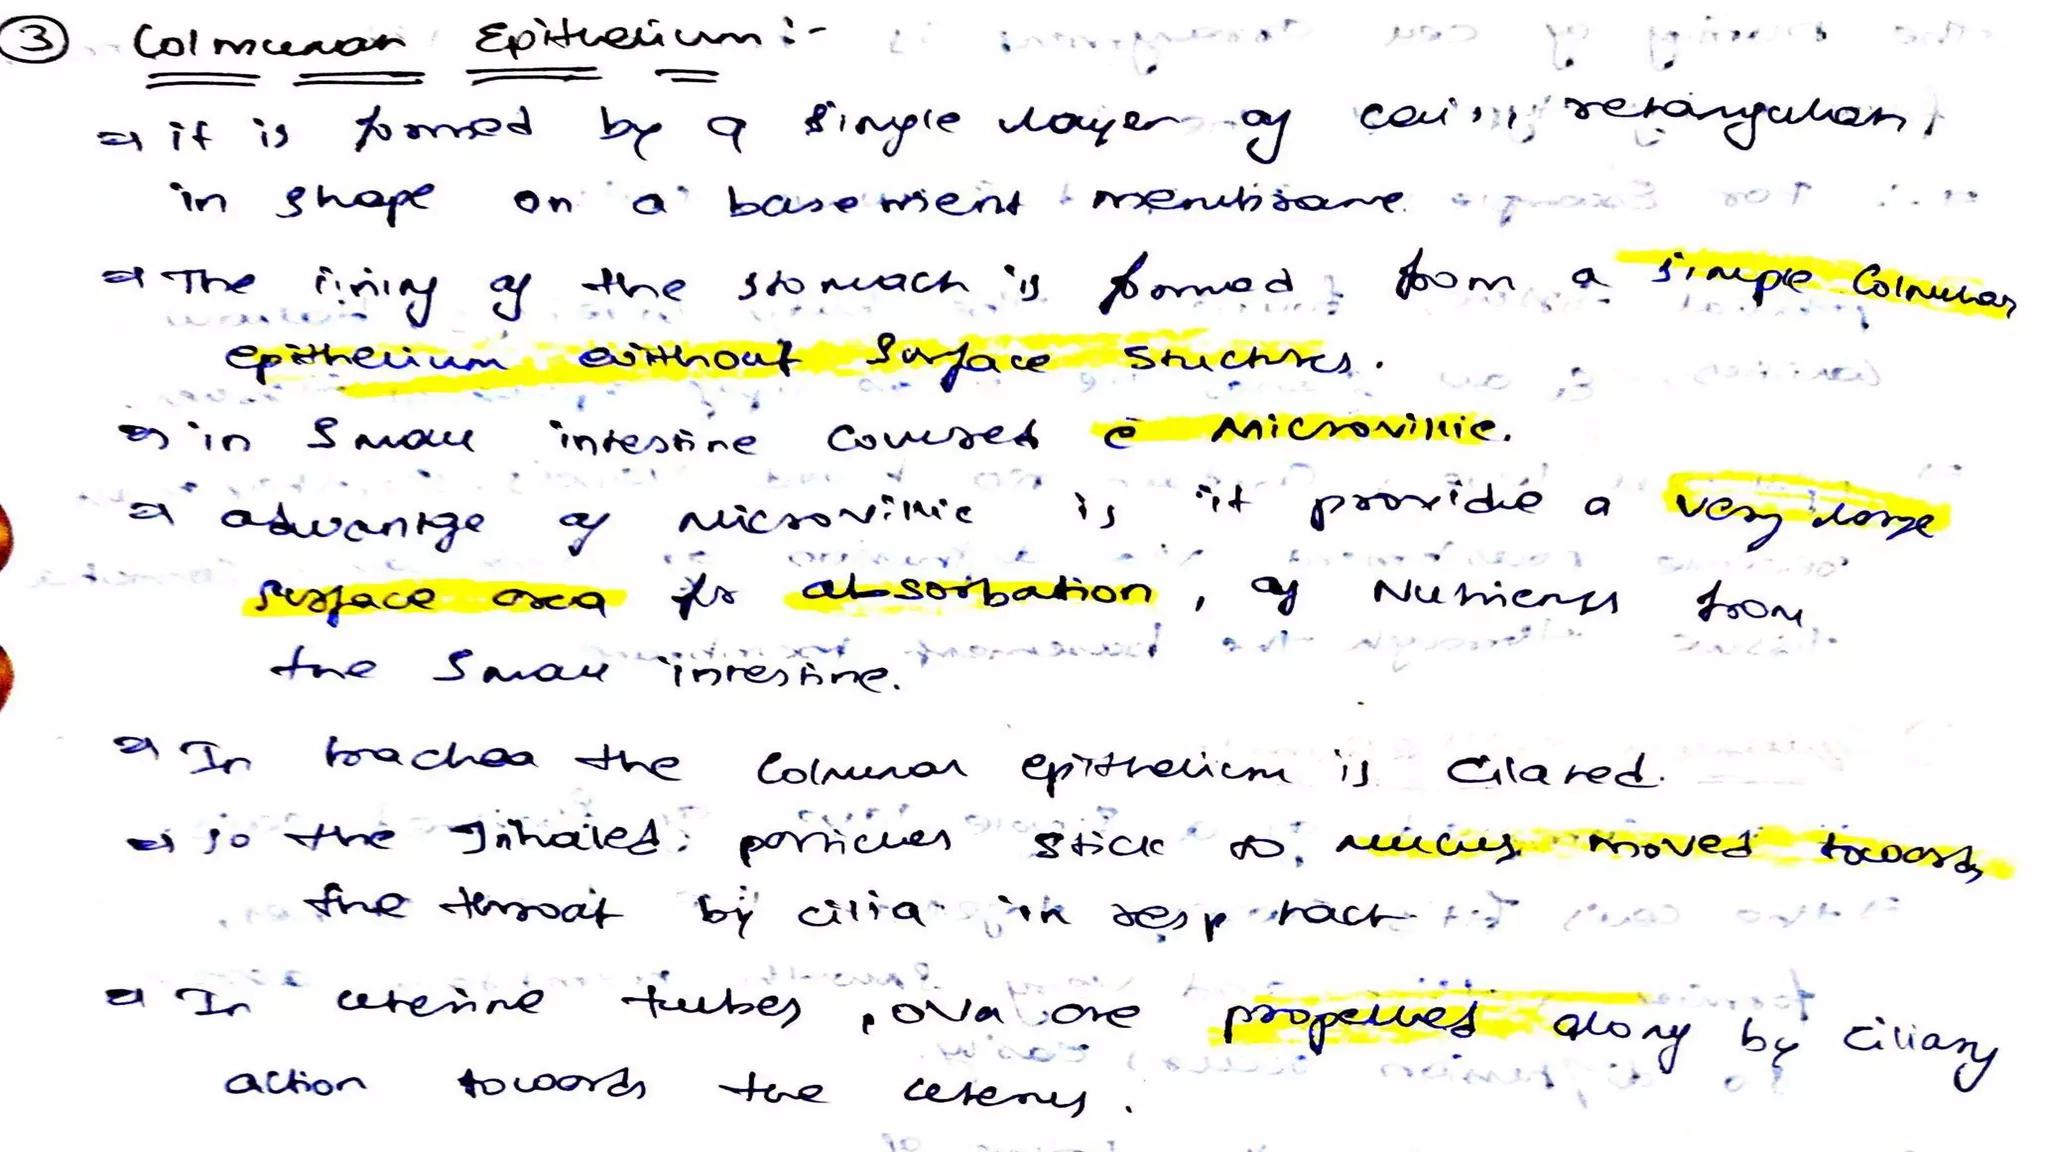 ③ Colmunar Epithelium :-
⇒ it is formed by a single layer of cells, retangular,
in shape on a basement membrane.
⇒ The lining of the stomach is formed from a simple Colmunar
epithelium without surface structures.
⇒ in small intestine covered c̄ Microvillie.
⇒ advantge of Microvillie is it provide a very large
surface area for absorbation, of Nutrients from
the small intestine.
⇒ In trachea the Colmunar epithelium is Cilated.
⇒ so the Inhaled particles stick to mucus moved towards
the throat by cilia in resp tract.
⇒ In uterine tubes, ova are propelled along by ciliary
action towards the uterus.